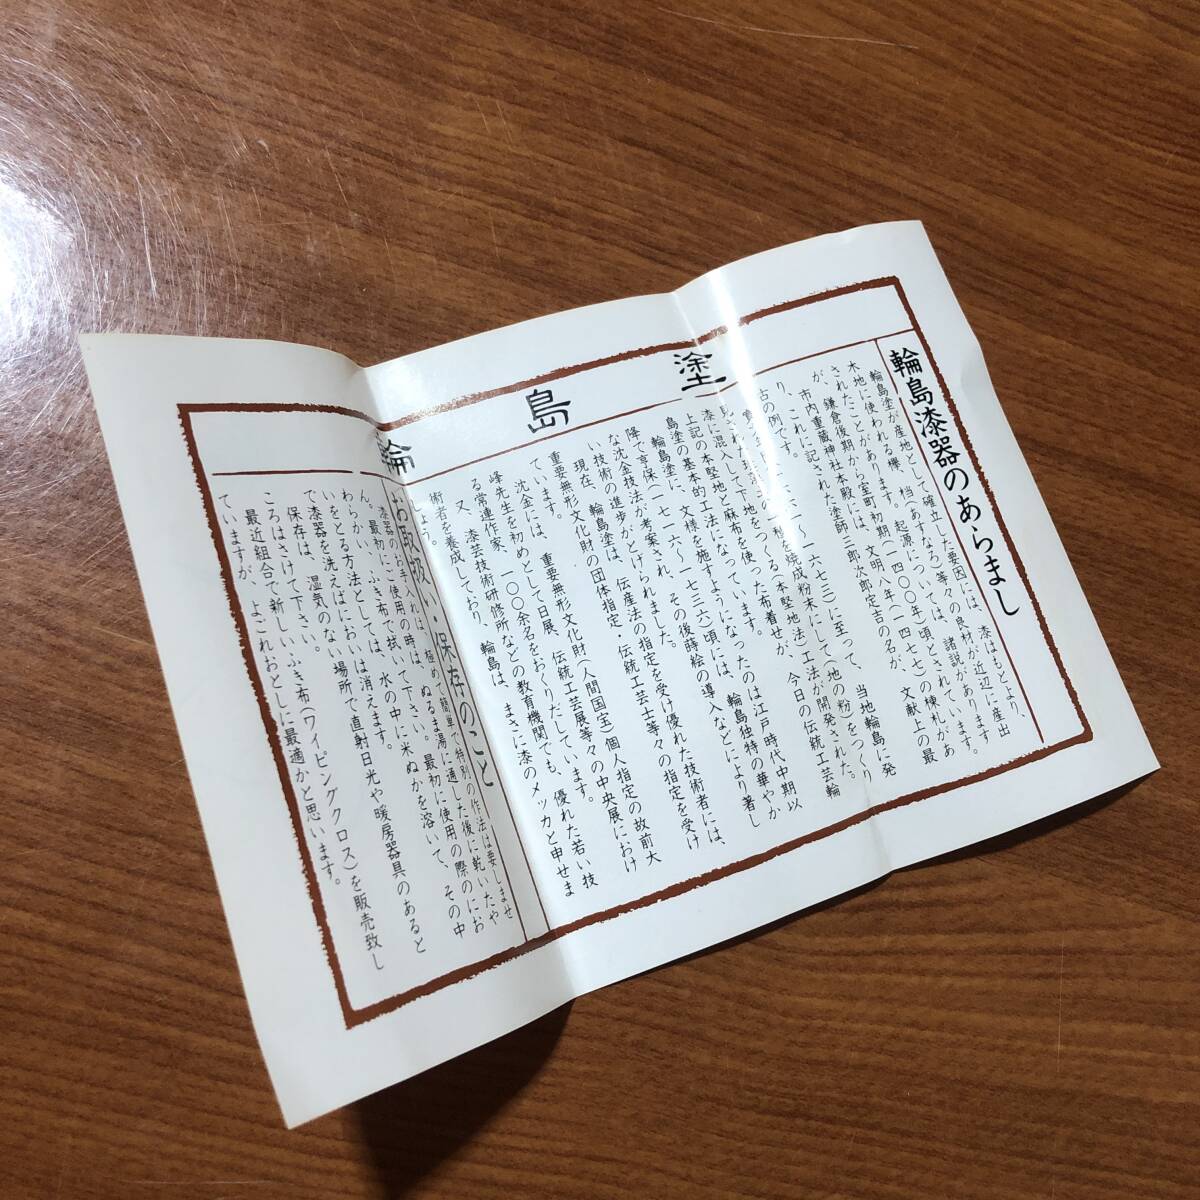 輪島塗
輪島漆器のあらまし
輪島塗が産地として確立した要因には、漆はもとより、
木地に使われる欅、档(あすなろ)等々の良材が近辺に産出
されたことがあります。起源については、諸説があります
が、鎌倉後期から室町初期(一四〇〇年)頃とされています。
市内重蔵神社本殿には、文明八年(一四七七)の棟札があ
り、これに記された塗師三郎次郎定吉の名が、文献上の最
古の例です。
に至って、当地輪島に発
を焼成粉末にして(地の粉)をつくり
漆に混入して下地をつくる(本堅地法)工法が開発された。
上記の本堅地と麻布を使った布着せが、今日の伝統工芸輪
島塗の基本的工法になっています。
輪島塗に、文様を施すようになったのは江戸時代中期以
降で享保(一七一六〜一七三六)頃には、輪島独特の華やか
な沈金技法が考案され、その後蒔絵の導入などにより著し
い技術の進歩がとげられました。
現在、輪島塗は、伝産法の指定を受け優れた技術者には、
重要無形文化財の団体指定・伝統工芸士等々の指定を受け
ています。
沈金には、重要無形文化財(人間国宝)個人指定の故前大
峰先生を初めとして日展、伝統工芸展等々の中央展におけ
る常連作家、一〇〇余名をおくりだしています。
又、漆芸技術研修所などの教育機関でも、優れた若い技
術者を養成しており、輪島は、まさに漆のメッカと申せま
しょう。
お取扱い・保存のこと
漆器のお手入れは、極めて簡単で特別の作法は要しませ
ん。最初にご使用の時は、ぬるま湯に通した後に乾いたや
わらかい、ふき布で拭いて下さい。最初に使用の際のにお
いをとる方法としては、水の中に米ぬかを溶いて、その中
で漆器を洗えばにおいは消えます。
保存は、湿気のない場所で直射日光や暖房器具のあると
ころはさけて下さい。
最近組合で新しいふき布(ワイピングクロス)を販売致し
ていますが、よごれおとしに最適かと思います。